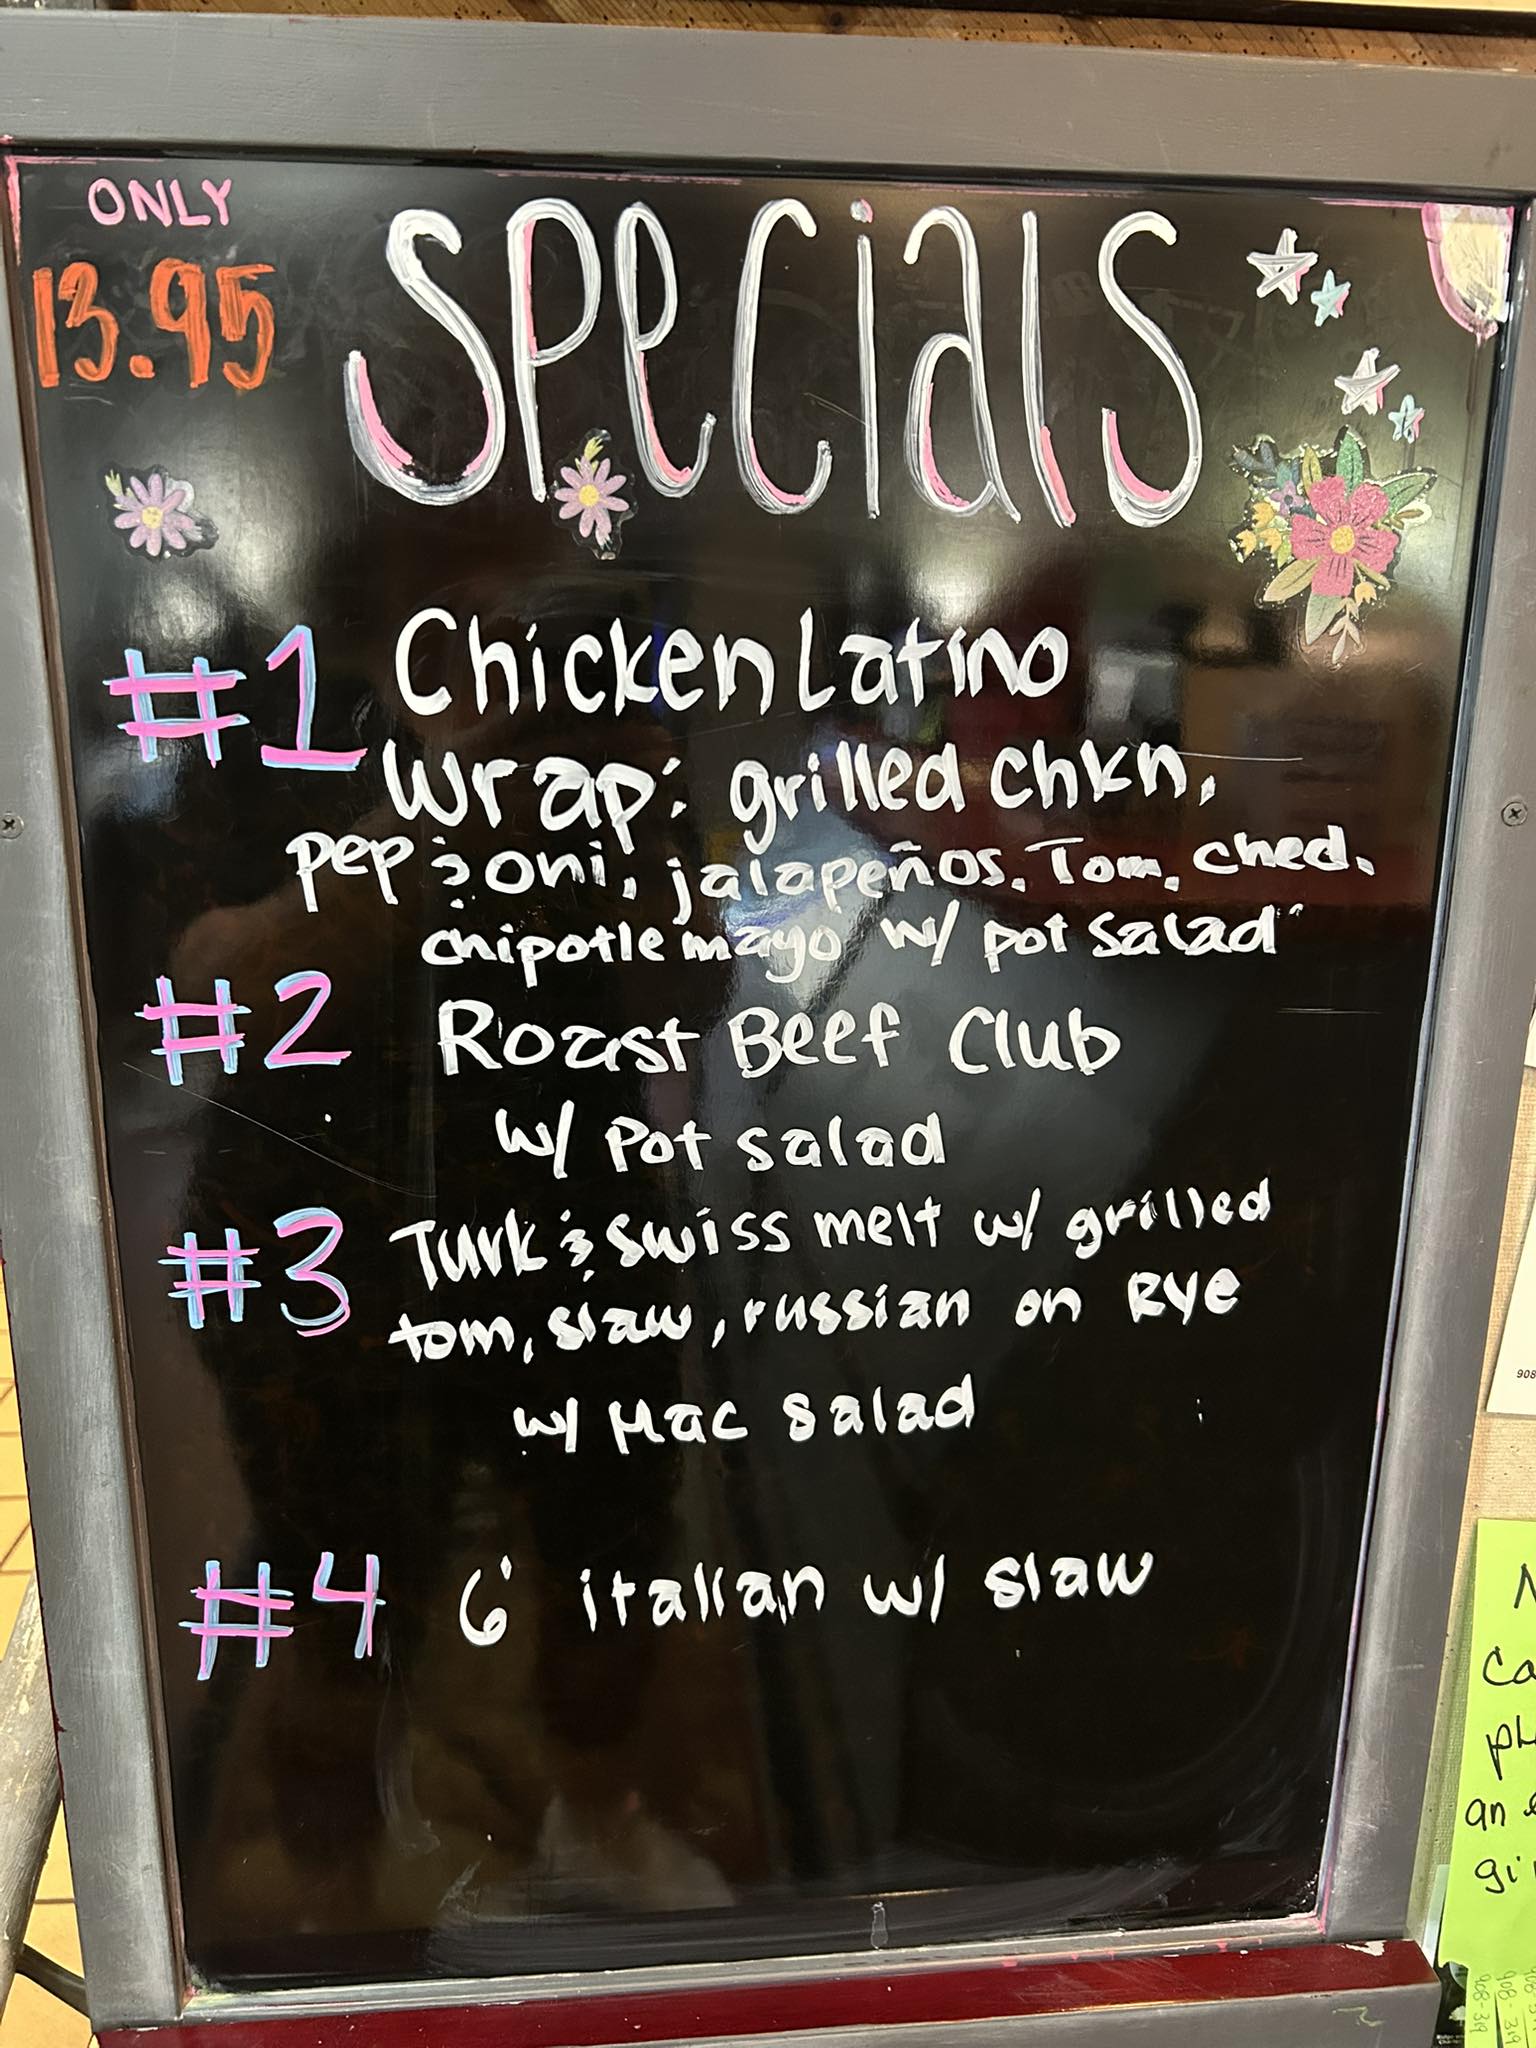 ONLY
13.95
Specials
#1 Chicken Latino
Wrap: grilled chkn,
pep & oni, jalapeños, Tom, ched,
chipotle mayo w/ pot salad
#2 Roast Beef Club
w/ Pot salad
#3 Turk & swiss melt w/ grilled
tom, slaw, russian on Rye
w/ Mac salad
#4 6' italian w/ slaw
908
an
908-319
908-319